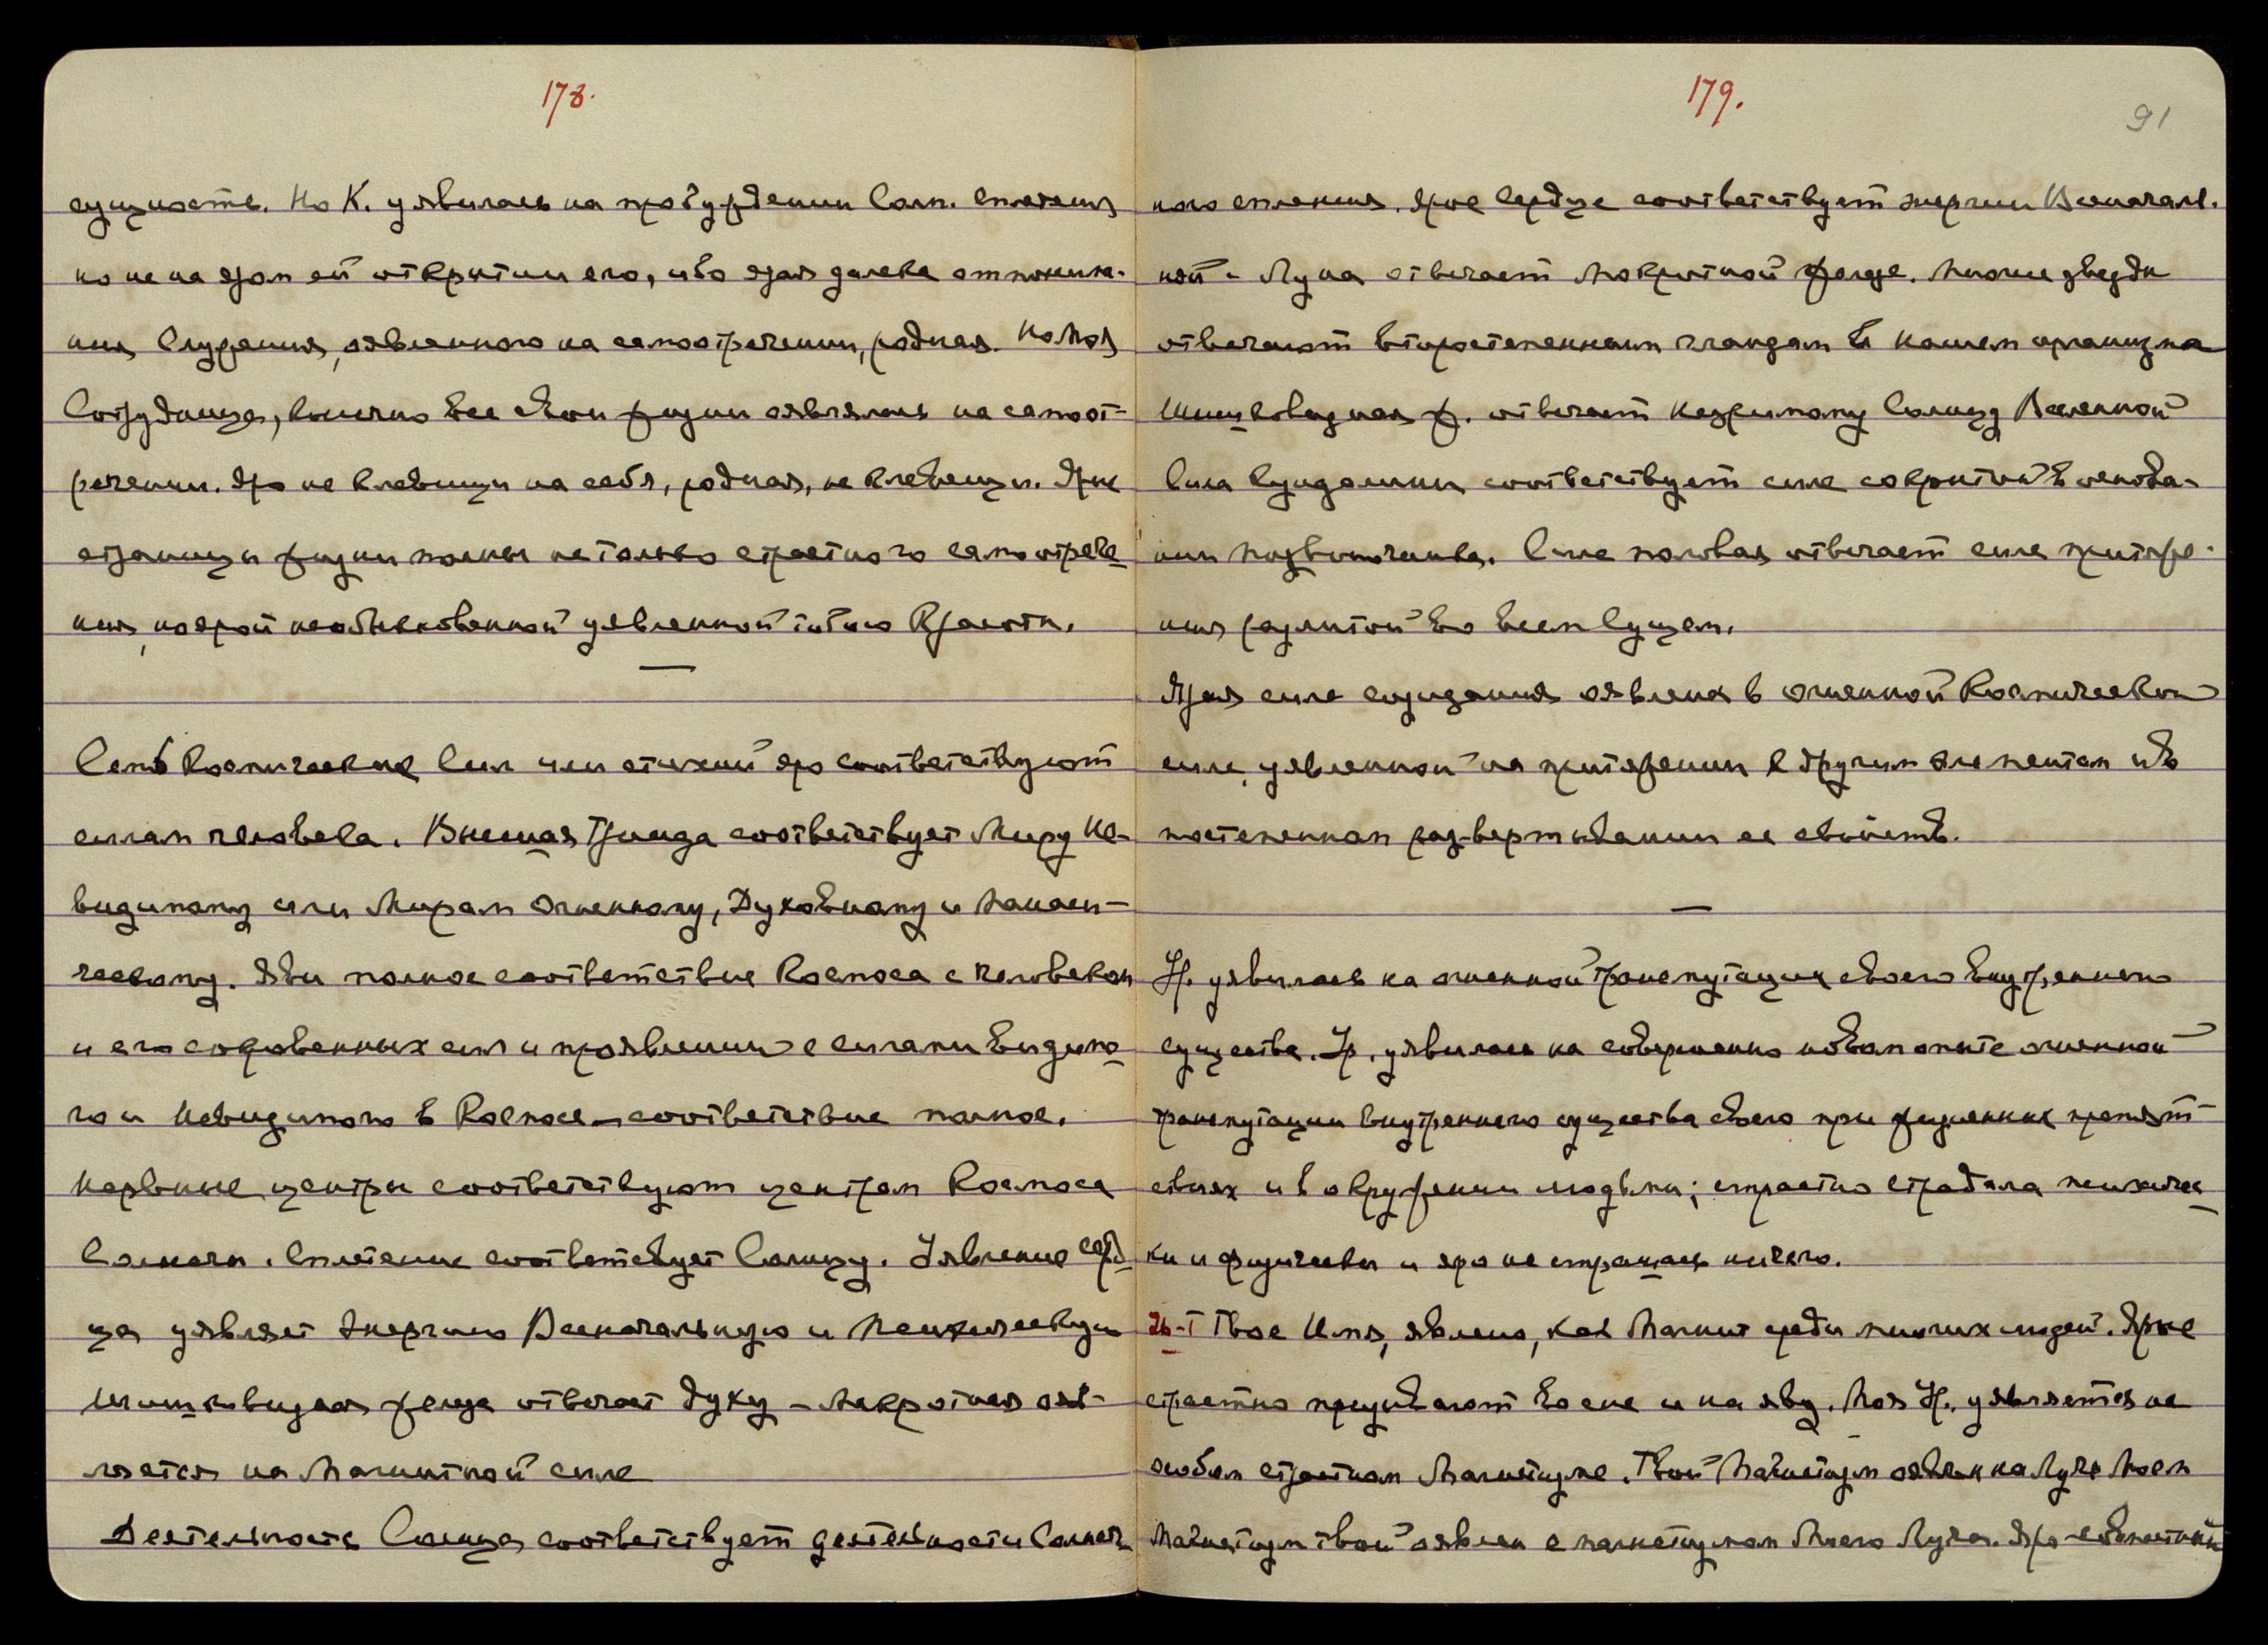 178.
сущность. Но К. уявилась на пробуждении Солн. сплетения
но не на яром ей открытии его, ибо ярая далека от понима-
ния Служения, оявленного на самоотречении, родная. Но моя
Сотрудница, конечно все свои жизни оявлялась на самоот-
речении. Яро не клевещи на себя, родная, не клевещи. Ярые
страницы жизни полны не только страстного самоотрече
ния, но ярой необыкновенной уявленной тобою Красоты.
Семь Космических Сил или стихий яро соответствуют
силам человека. Высшая Триада соответствует Миру Не-
видимому или Мирам Огненному, Духовному и Манаси-
ческому. Яви полное соответствие Космоса с человеком
и его сокровенных сил и проявлений с силами Видимо
го и Невидимого в Космосе – соответствие полное.
Нервные центры соответствуют центрам Космоса
Солнечн. Сплетение соответствует Солнцу. Уявление серд
ца уявляет Энергию Всеначальную и Психическую
Шишковидная железа отвечает духу – Мокротная ояв-
ляется на Магнитной силе
Деятельность Солнца соответствует деятельности Солнеч
179.
91
ного сплетения. Ярое сердце соответствует энергии Всеначаль.
ной – Луна отвечает Мокротной железе. Многие звезды
отвечают второстепенным гландам в нашем организме
Шишковидная ж. отвечает Незримому Солнцу Вселенной
Сила Кундалини соответствует силе сокрытой в основа-
нии Позвоночника. Сила половая отвечает силе притяже-
ния разлитой во всем Сущем.
Ярая сила созидания оявлена в огненной Космической
силе, уявленной на притяжении к другим элементам и в
постепенном раз-вертывании ее свойств.
Ур. уявилась на огненной трансмутации своего внутреннего
существа. Ур. уявилась на совершенно новом опыте огненной
трансмутации внутреннего существа своего при жизненных препят-
ствиях и в окружении людьми; страстно страдала психичес
ки и физически и яро не страшась ничего.
26-I Твое Имя, явлено, как Магнит среди многих людей. Ярые
страстно призывают во сне и на яву. Моя Ур. уявляется на
особом страстном Магнетизме. Твой Магнетизм оявлен на Луче Моем
Магнетизм твой оявлен с магнетизмом Моего Луча. Яро